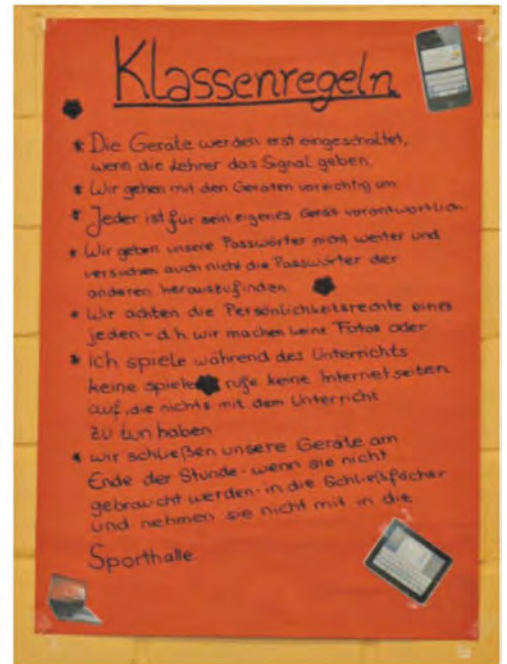 Klassenregeln
* Die Geräte werden erst eingeschaltet,
wenn die Lehrer das Signal geben.
* Wir gehen mit den Geräten vorsichtig um
* Jeder ist für sein eigenes Gerät verantwortlich.
* Wir geben unsere Passwörter nicht weiter und
versuchen auch nicht die Passwörter der
anderen herauszufinden
* Wir achten die Persönlichkeitsrechte eines
jeden - d.h. wir machen keine Fotos oder
* Ich spiele während des Unterrichts
keine spiele rufe keine Internetseiten
auf, die nichts mit dem Unterricht
zu tun haben
* wir schließen unsere Geräte am
Ende der Stunde - wenn sie nicht
gebraucht werden - in die Schließfächer
und nehmen sie nicht mit in die
Sporthalle